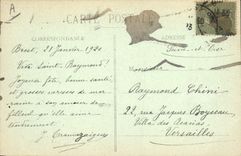 A
CARTE POSTALE
CORRESPONDANCE
ADRESSE
Brest, 21 Janvier 1920
Vive Saint Raymond!
Joyeuse fête, bonne santé
et grosses caresses de mar-
raine à son amour de
filleul qu'elle aime
tendrement.
Seine et Oise
Monsieur
Raymond Chéni
22, rue Jacques Boyceau
Villa des Acacias
Versailles